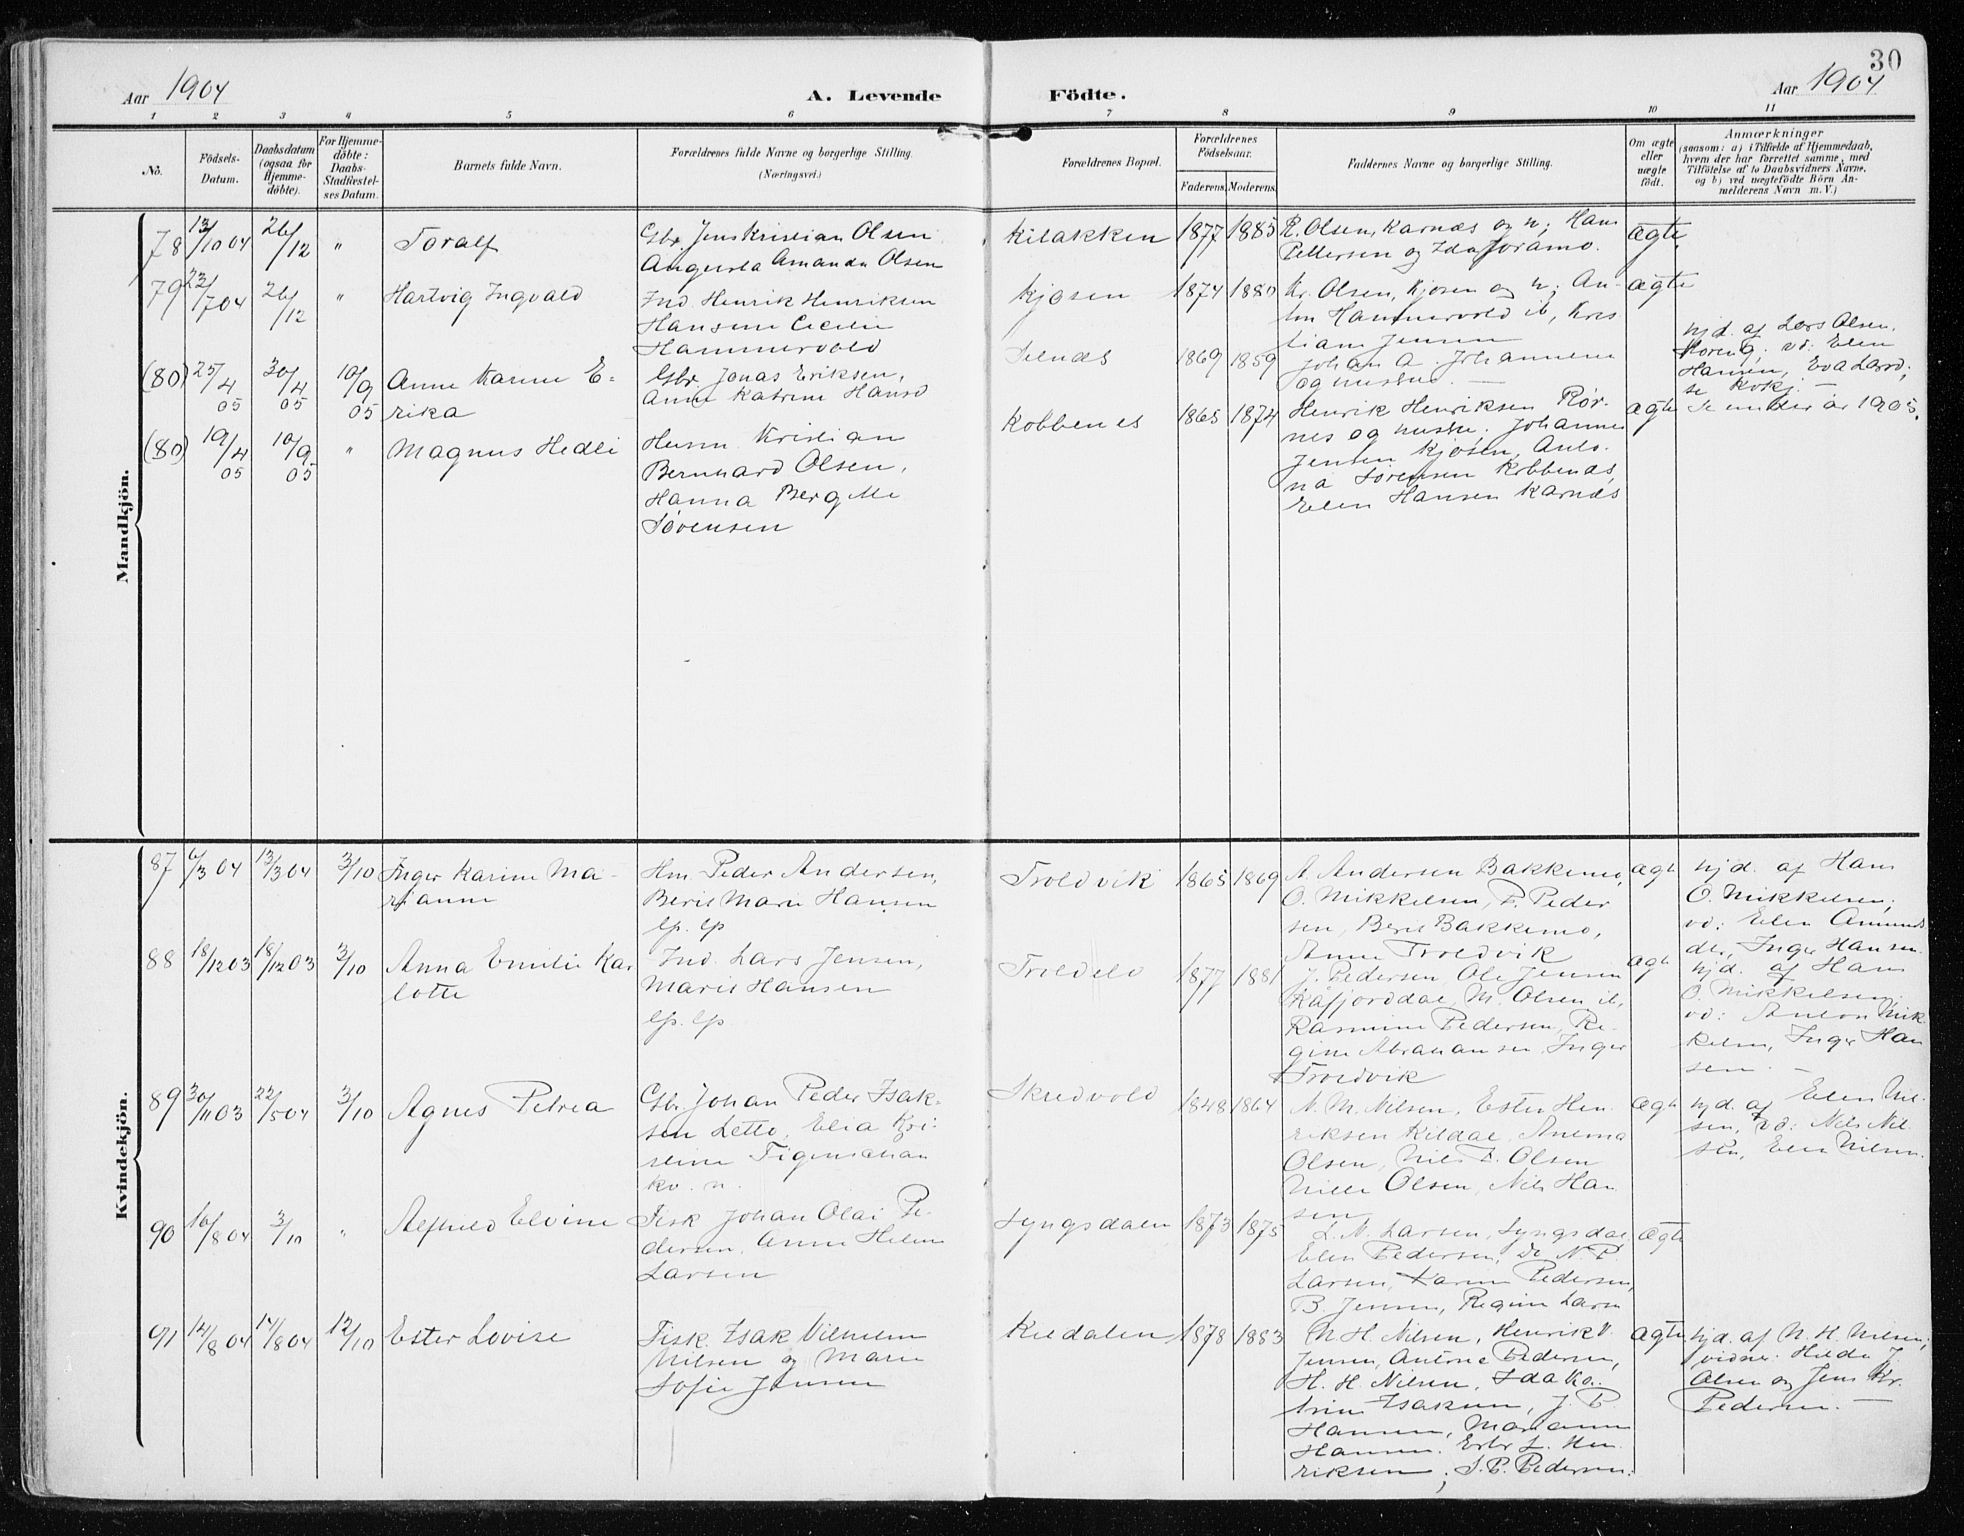 30
Aar 1904
A. Levende Födte.
Aar 1904
1 2 3 4 5 6 7 8 9 10 11
No.
Födsels-
Datum.
Daabsdatum
(ogsaa for
Hjemme-
döbte).
For Hjemme-
döbte:
Daabs-
Stadfæstel-
ses Datum.
Barnets fulde Navn.
Forældrenes fulde Navne og borgerlige Stilling.
(Næringsvei.)
Forældrenes Bopæl.
Forældrenes
Födselsaar.
Faderens. Moderens.
Faddernes Navne og borgerlige Stilling.
Om ægte
eller
uægte
födt.
Anmærkninger
(saasom: a) i Tilfælde af Hjemmedaab,
hvem der har forrettet samme, med
Tilföielse af to Daabsvidners Navne,
og b) ved uægtefödte Börn An-
melderens Navn m. V.)
Mandkjön.
78 13/10 04 26/12 " Toralf
Gbr. Jens Kristian Olsen
Augusta Amanda Olsen
Kilakken 1877 1885
R. Olsen, Karnæs og h; Hans
Pettersen og Ida Joramo.
ægte
79 23/7 04 26/12 " Hartvig Ingvald
Ind. Henrik Henriksen
Hansine Cecilie
Hammervold
Kjosen 1874 1880
Kr. Olsen, Kjosen og h; An-
ton Hammervold ib, Kris
tiane Jensen
ægte
(80) 25/4 05 30/4 05 10/9 05 Anne Karine E-
rika
Gbr. Jonas Eriksen,
Anne Katrine Hansd
1869 1859
Johan A Johannesen
og hustru. —
hjd. af Lars Olsen
Koreng; vd: Elen
Hansen, Eva Larsd;
se Kokj. —
(80) 19/4 05 10/9 05 " Magnus Hedli
Husm Kristian
Bernhard Olsen,
Hanna Bergitte
Sörensen
Kobbenes 1865 1874
Henrik Henriksen Rör-
nes og hustru. Johannes
Jensen Kjosen, Anto-
na Sörensen Kobbenæs,
Elen Hansen Karnæs
ægte
Se under år 1905.
Kvindekjön.
87 6/3 04 13/3 04 3/10 Inger Karine Ma-
rianne
Hm. Peder Andersen,
Berit Marie Hansen
lp. lp
Troldvik 1865 1869
A Andersen Bakkemo,
O. Mikkelsen, P. Peder
sen, Berit Bakkemo,
Anne Troldvik
ægt
hjd. af Hans
O. Mikkelsen;
vd: Elen Amunds
dtr, Inger Hansen.
88 18/12 03 18/12 03 3/10 Anna Emilie Kar
lotte
Ind. Lars Jensen,
Marit Hansen
lp. lp.
Troldelv 1877 1881
J. Pedersen, Ole Jensen
Kåfjorddal, M. Olsen ib,
Rasmine Pedersen, Re-
gine Abrahamsen, Inger
Troldvik
ægt
hjd. af Hans
O. Mikkelsen,
vd: Anton Mik
kelsen, Inger Han
sen. —
89 30/11 03 22/5 04 3/10 Agnes Petrea
Gbr Johan Peder Isak-
sen Letto, Elia Kri-
stine Figenschau
kv. n.
Skredvold 1848 1864
N. M. Nilsen, Ester Hen
riksen Kildal, Antona
Olsen, Nils P. Olsen
Nille Olsen, Nils Han
sen
ægt
hjd. af Elen Nil-
sen, vd: Nils Nil-
sen, Elen Nilsen.
90 16/8 04 3/10 " Alfhild Elvine
Fisk Johan Olai Pe-
dersen, Anne Helene
Larsen
Lyngsdalen 1873 1875
L. N. Larsen, Lyngsdal,
Elen Pedersen, Do N. P.
Larsen, Karen Pedersen,
B. Jensen, Regine Larsen
ægte
91 14/8 04 14/8 04 12/10 Ester Lovise
Fisk. Isak Vilhelm
Nilsen og Marie
Sofie Jensen
Kildalen 1878 1883
N H. Nilsen, Henrik V.
Jensen, Antone Pedersen,
H. H. Nilsen, Ida Ka-
trine Isaksen, J. P.
Hansen, Marianne
Hansen. Erbr L. Hen
riksen; S. P. Pedersen.
ægte
hjd. af N. H. Nilsen;
vidner: Hilda J
Olsen og Jens Kr.
Pedersen. —